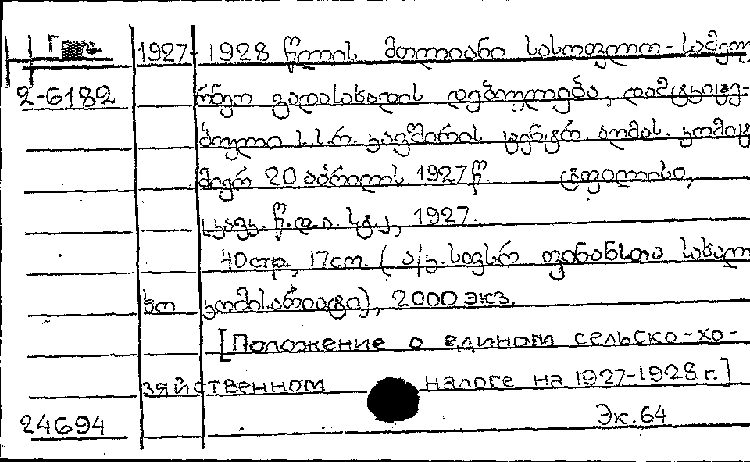 1927-1928 წლის მთლიანი სასოფლო-სამეურ
2-6182 ნეო გადასახადის დებულება, დამტკიცე-
ბული ს.ს.რ. კავშირის ცენტრ. აღმას. კომიტ
მიერ 20 აპრილის 1927 წ. ტფილისი,
1927.
40 стр, 17 см. ( ა/კ. სოვსრ ფინანსთა სახალ
ხო კომისარიატი), 2000 экз.
[Положение о едином сельско-хо-
зяйственном налоге на 1927-1928 г.]
24694 Эк. 64